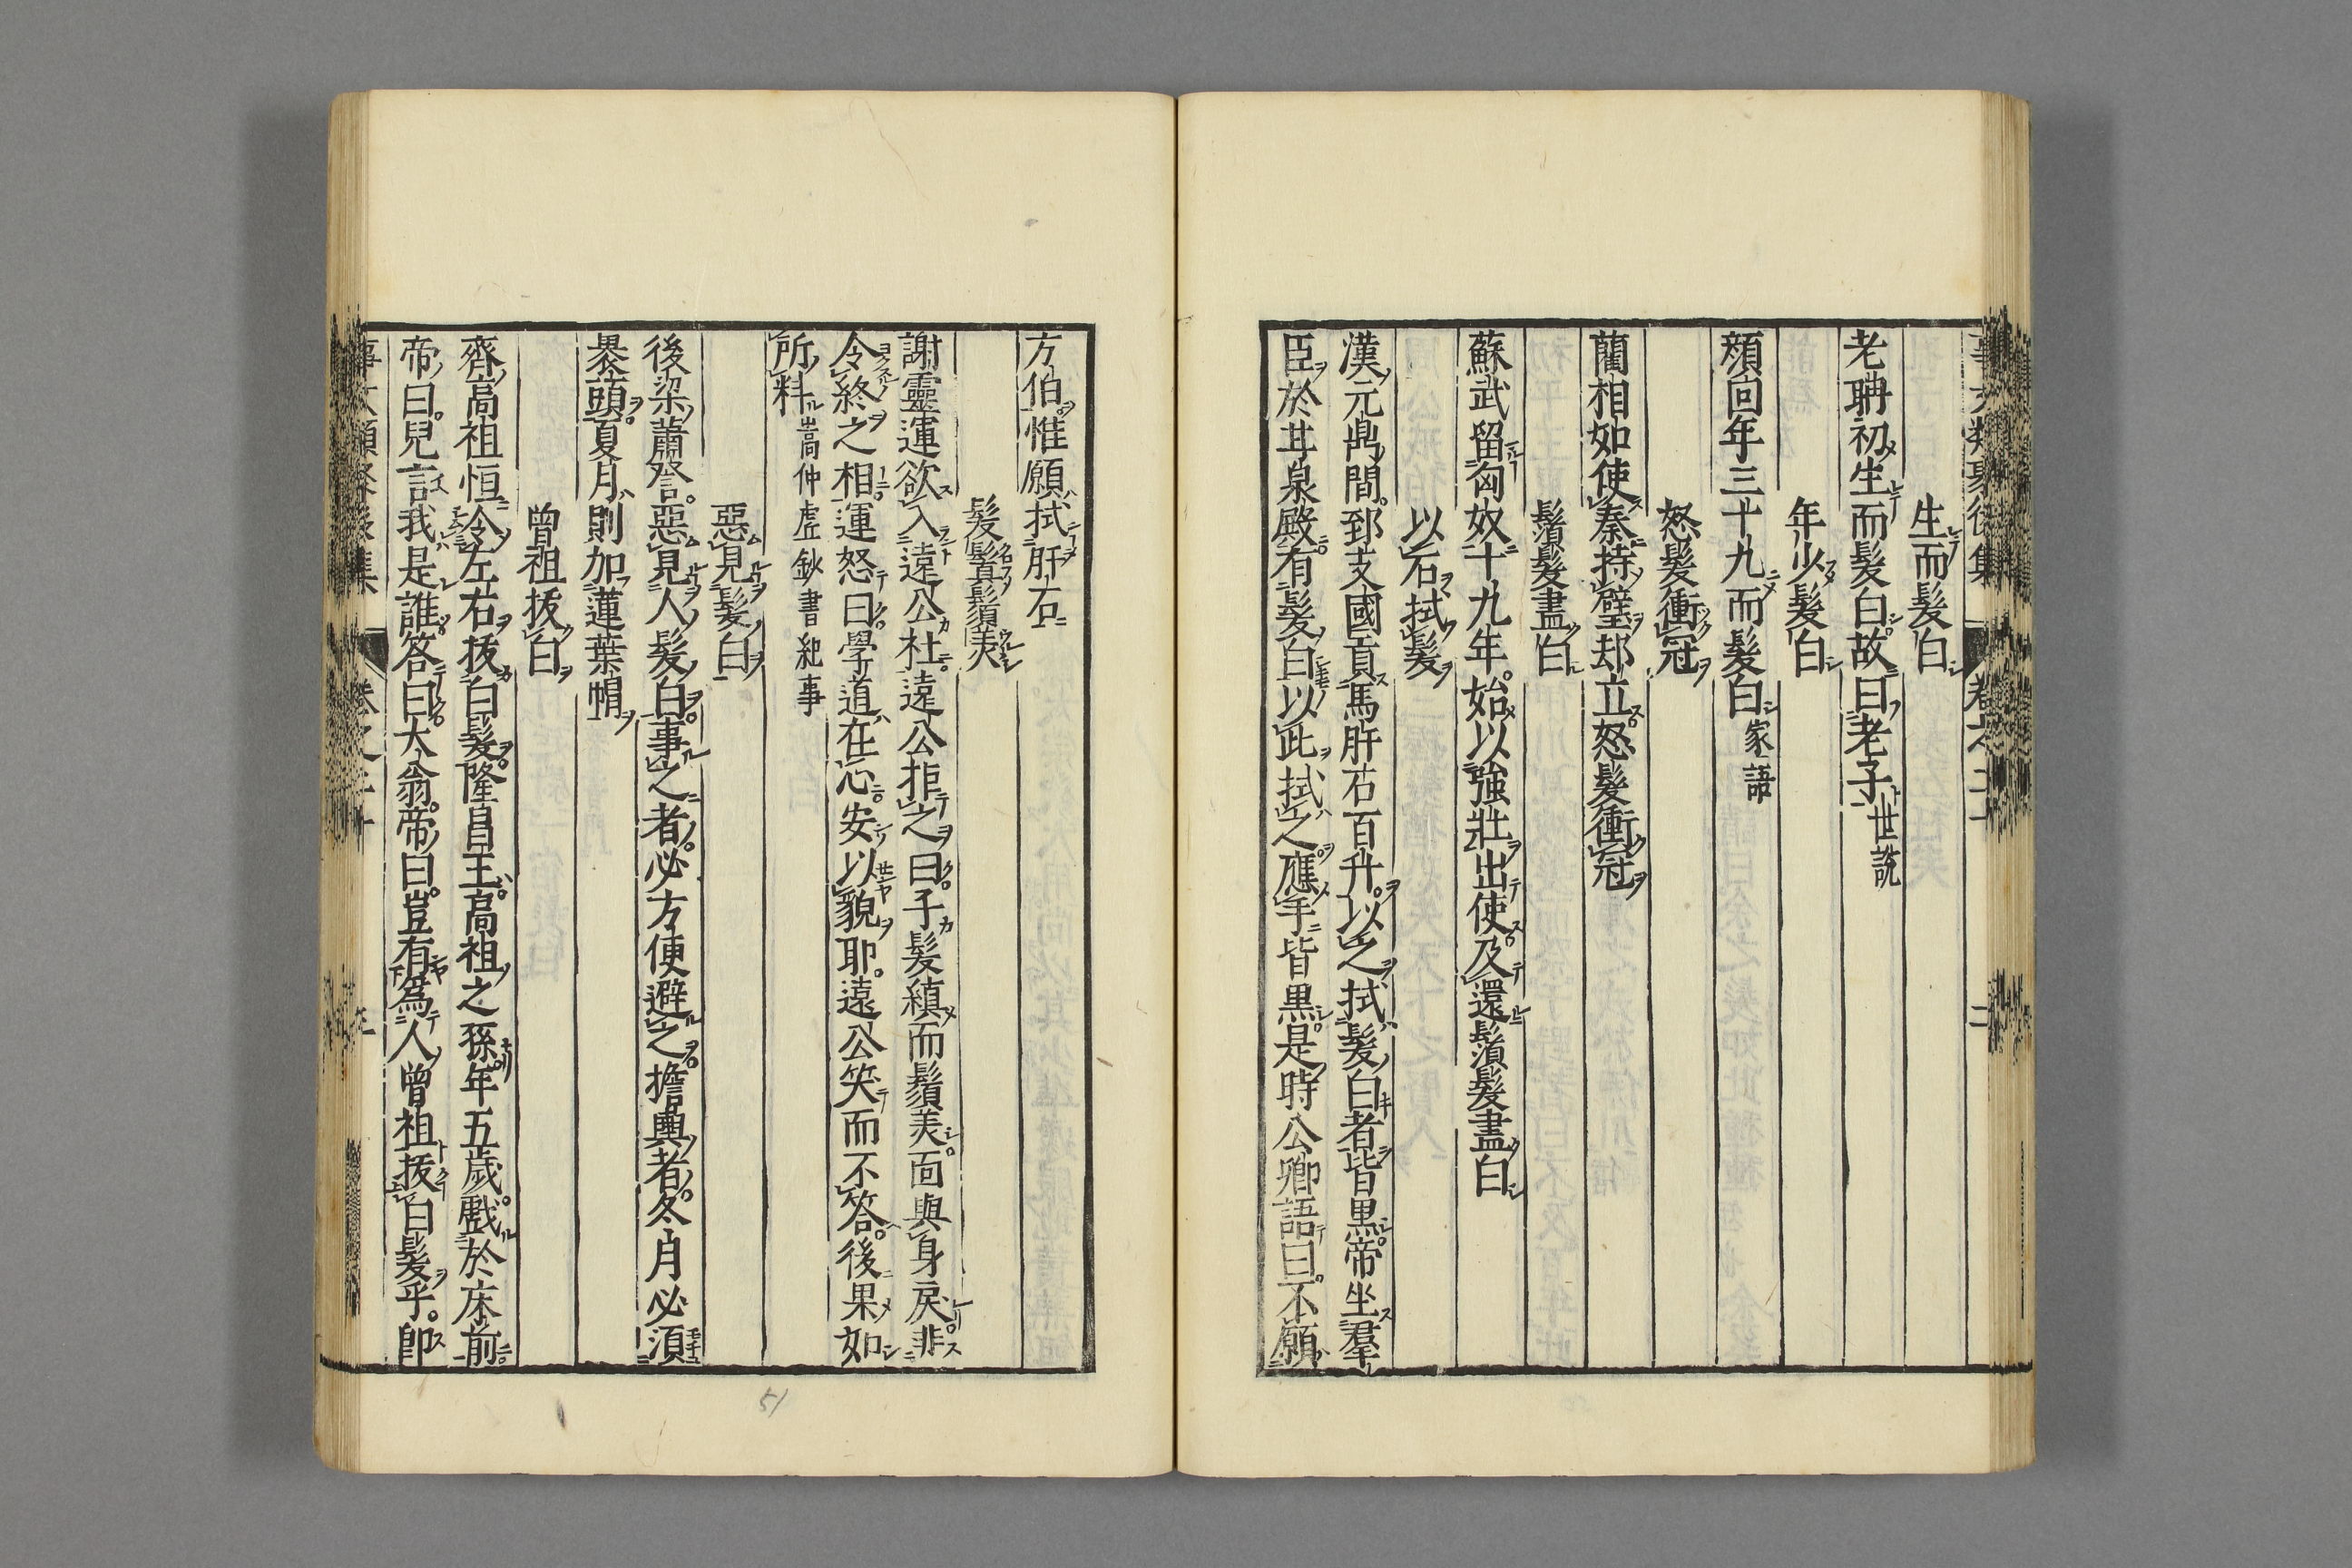 事文類聚後集 卷之二十 二
生而髮白
老聃初生而髮白故曰老子世說
年少髮白
顏回年三十九而髮白家語
怒髮衝冠
藺相如使秦持璧却立怒髮衝冠
鬚髮盡白
蘇武留匈奴十九年始以強壯出使及還鬚髮盡白
以石拭髮
漢元鼎間郅支國貢馬肝石百斤以之拭髮白者皆黑帝坐羣
臣於甘泉殿有髮白以此拭之應手皆黑是時公卿語曰不願
方伯惟願拭肝石
髮鬒鬚美
謝靈運欲入遠公社遠公拒之曰子髮縝而鬚美面與身戾非
令終之相運怒曰學道在心安以貌耶遠公笑而不答後果如
所料嵩仲虛鈔書紀事
惡見髮白
後梁蕭詧惡見人髮白事之者必方便避之擔輿者冬月必須
暴頭夏月則加蓮葉帽
曾祖拔白
齊高祖恒令左右拔白髮隆昌王高祖之孫年五歲戲於床前
帝曰兒言我是誰答曰太翁帝曰豈有爲人曾祖拔白髮乎即
事文類聚後集 卷之二十
51